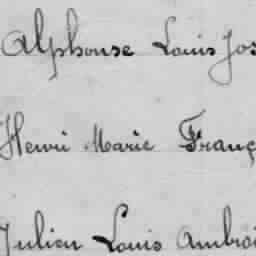 Alphonse Louis Jos
Henri Marie Franç
Julien Louis Ambroi